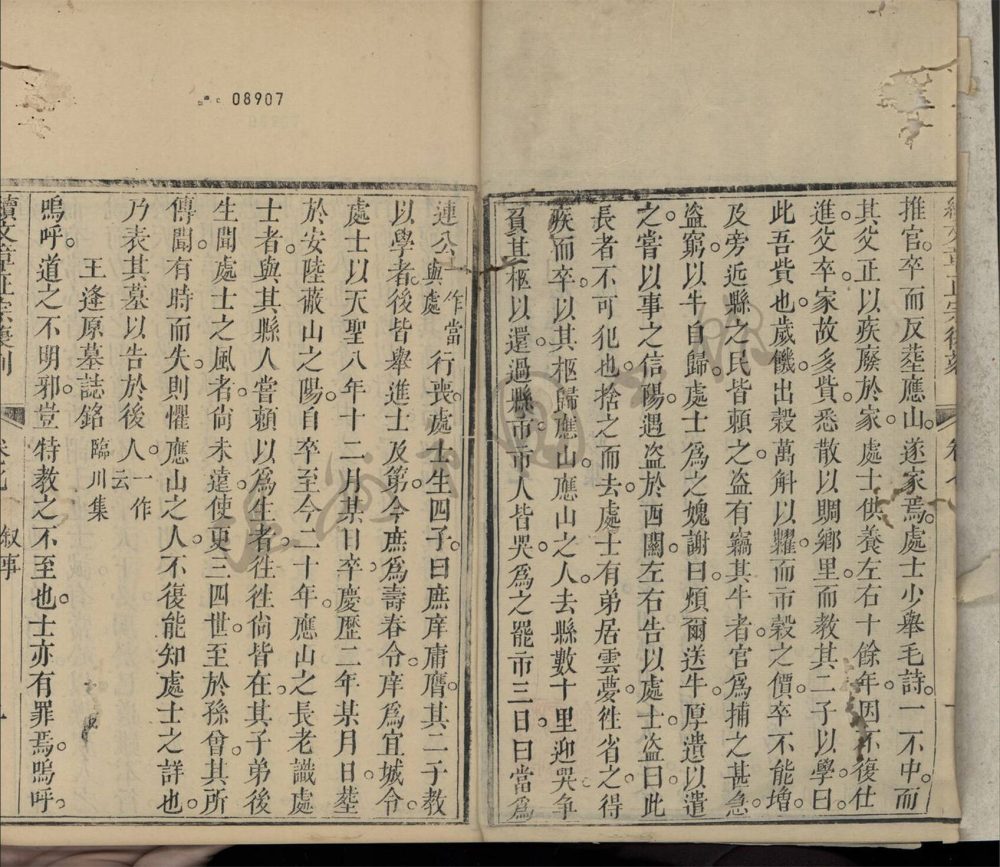 推官卒而反塟應山遂家焉處士少舉毛詩一不中而
其父正以疾廢於家處士供養左右十餘年因不復仕
進父卒家故多貲悉散以賙鄉里而教其二子以學曰
此吾貲也歲饑出穀萬斛以糶而市穀之價卒不能增
及旁近縣之民皆賴之盜有竊其牛者官爲捕之甚急
盜窮以牛自歸處士爲之媿謝曰煩爾送牛厚遺以遣
之嘗以事之信陽遇盜於西關左右告以處士盜曰此
長者不可犯也捨之而去處士有弟居雲夢徃省之得
疾而卒以其柩歸應山應山之人去縣數十里迎哭爭
負其柩以還過縣市市人皆哭爲之罷市三日曰當爲
連公與處士一作當行喪處士生四子曰庶庠庸膺其二子教
以學者後皆舉進士及第今庶爲壽春令庠爲宜城令
處士以天聖八年十二月某日卒慶歷二年某月日塟
於安陸蔽山之陽自卒至今二十年應山之長老識處
士者與其縣人嘗賴以爲生者徃徃尙皆在其子弟後
生聞處士之風者尙未遠使更三四世至於孫曾其所
傳聞有時而失則懼應山之人不復能知處士之詳也
乃表其墓以告於後人一作云
王逢原墓誌銘 臨川集
嗚呼道之不明邪豈特教之不至也士亦有罪焉嗚呼
敘事
08907